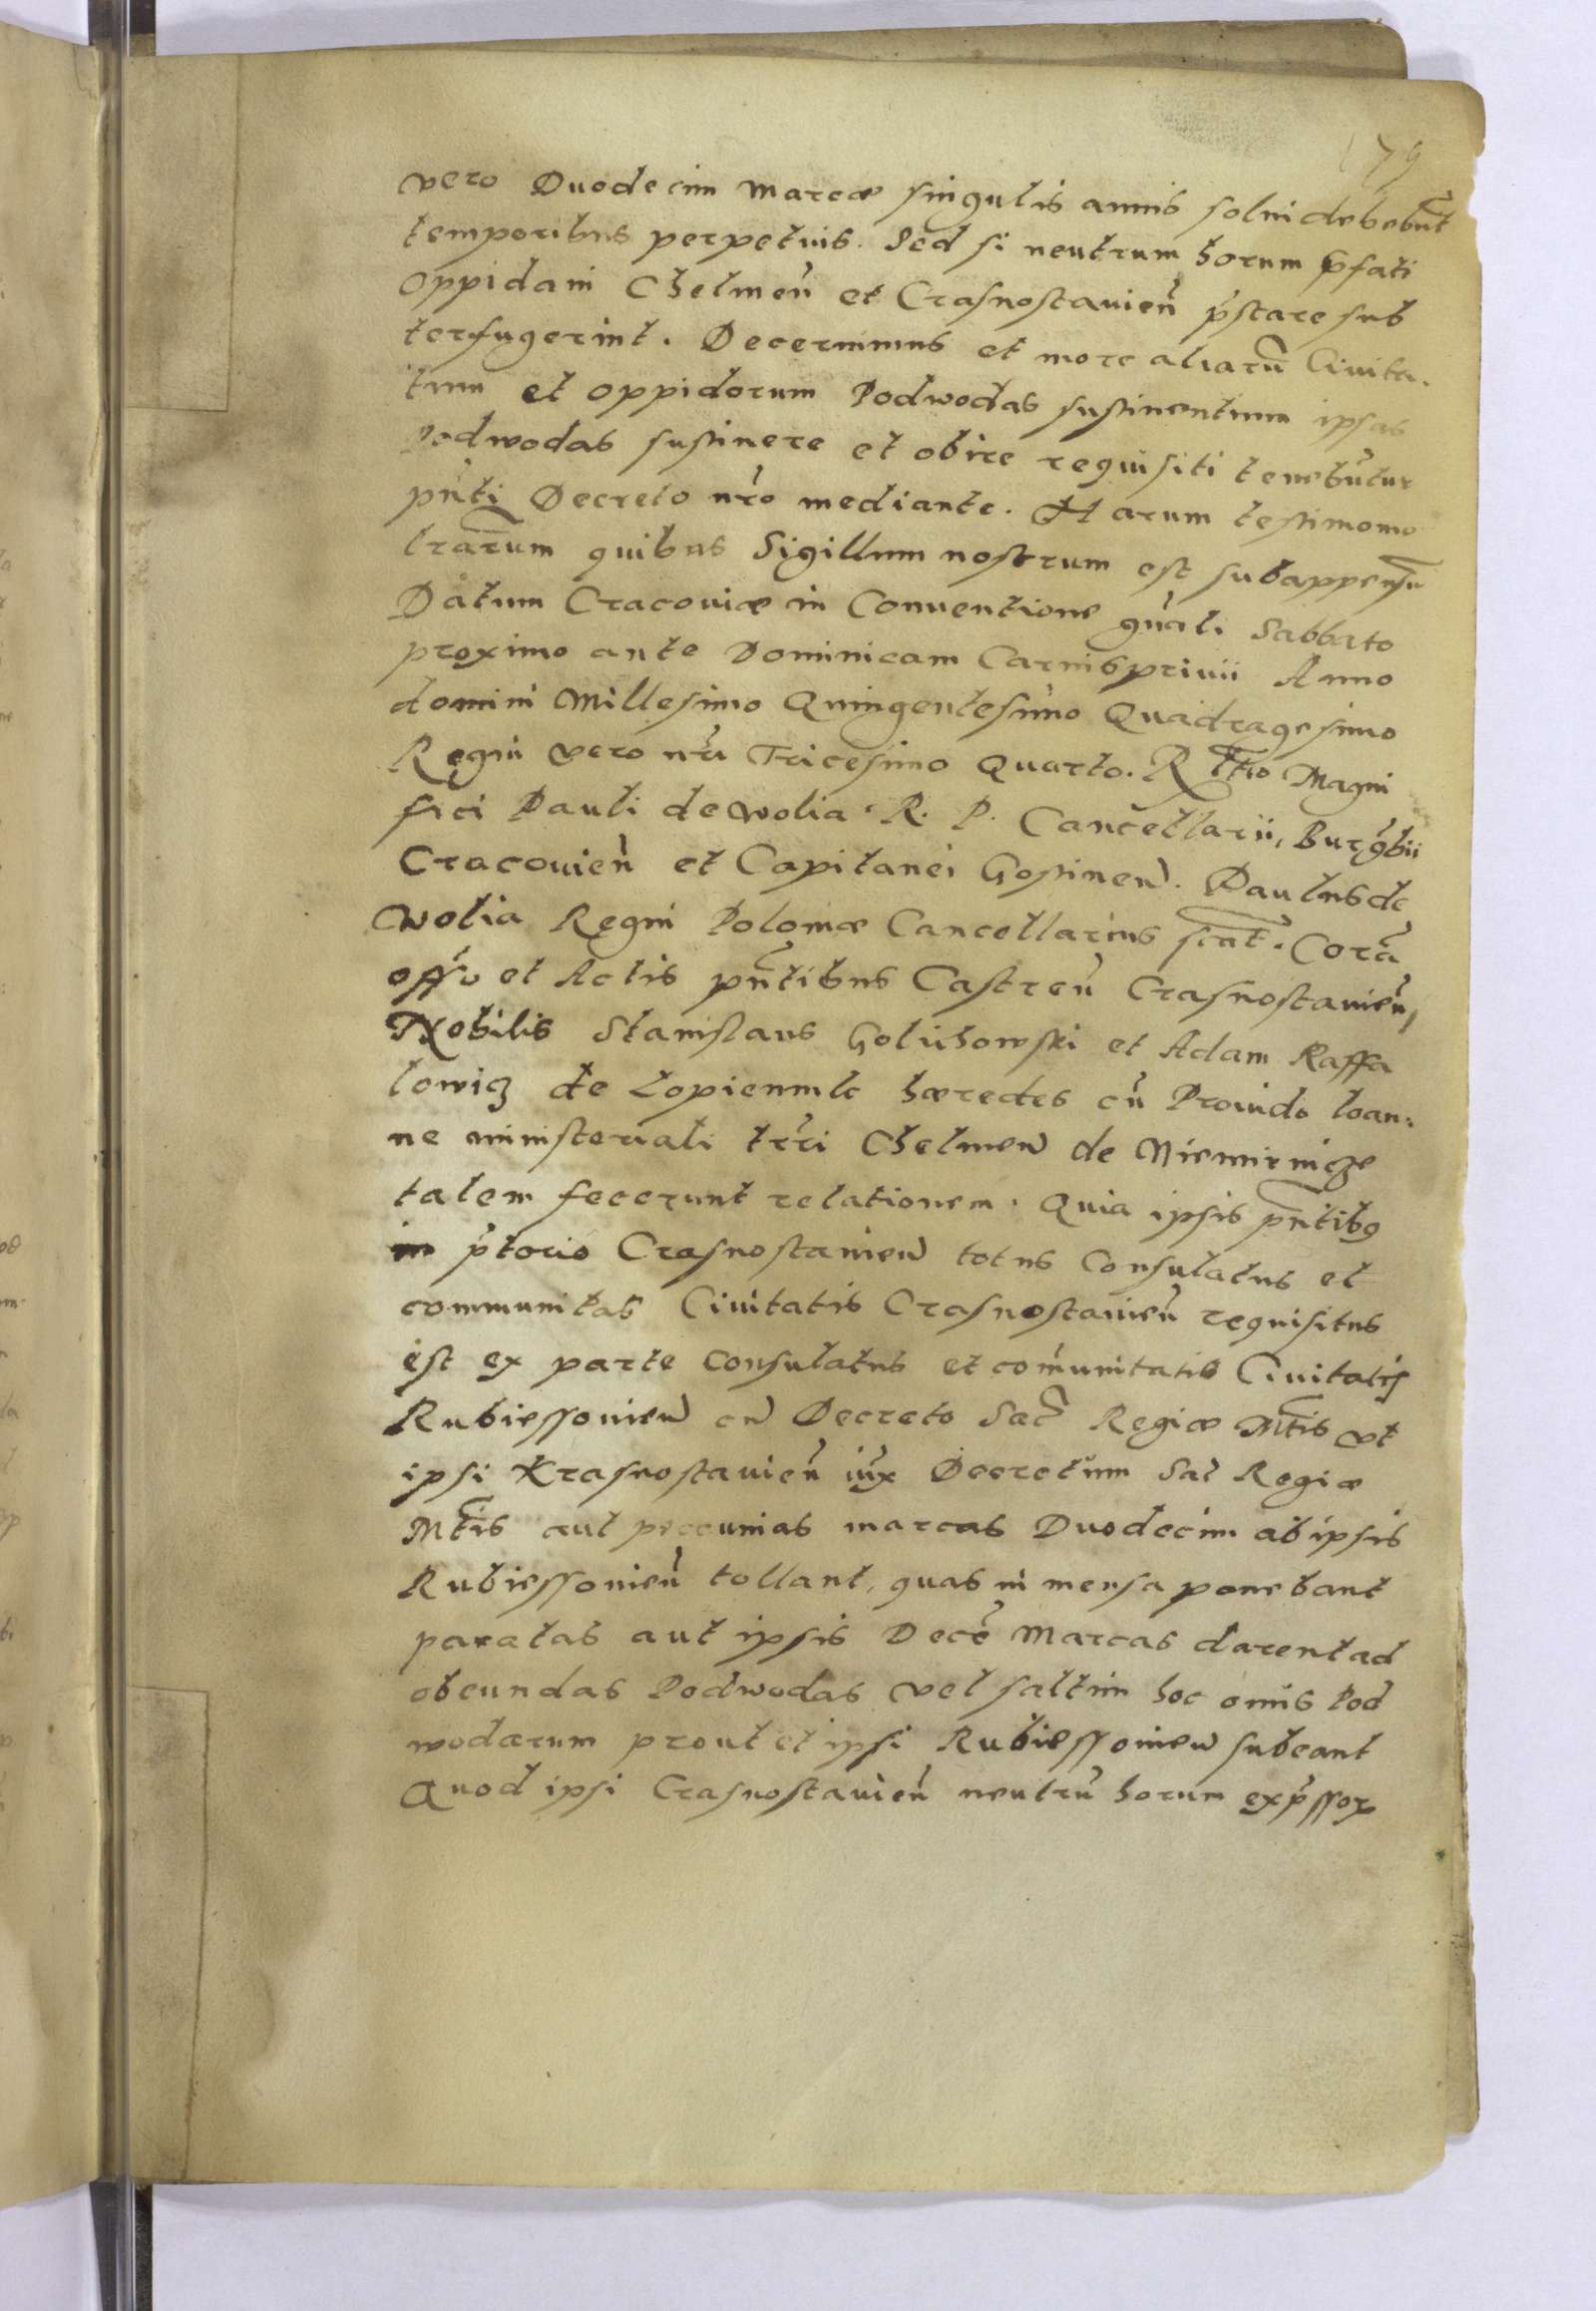 79
vero Duodecim Marcæ singulis annis solui debebūt
temporibus perpetuis. Sed si neutrum horum p̄fati
Oppidani Chelmeñ et Crasnostauieñ p̄stare sub
terfugerint. Decernimus et more aliarū Ciuita-
tum et oppidorum Podwodas sustinentium ipsas
Podwodas sustinere et obire requisiti tenebūtur
pñti Decreto nr̄o mediante. Harum testimonio
lr̄arum quibus Sigillum nostrum est subappensū
Datum Cracouiæ in Conuentione gñali Sabbato
proximo ante Dominicam Carnispriuii Anno
domini Millesimo Quingentesimo Quadragesimo
Regni vero nr̄i Tricesimo Quarto. R̄ltio Magni
fici Pauli de Wolia R. P. Cancellarii, Burgr̄bii
Cracouieñ et Capitanei Gostineñ. Paulus de
Wolia Regni Poloniæ Cancellarius scrpt̄. Corā
offō et Actis pñtibus Castreñ Crasnostauieñ,
Nobilis Stanislaus Goluchowski et Adam Raffa
lowicz de Lopiennik hæredes cū Prouido Ioan-
ne ministeriali trr̄i Chelmeñ de Niemienicze
talem fecerunt relationem. Quia ipsis pñtibꝯ
in p̄torio Crasnostauieñ totus Consulatus et
communitas Ciuitatis Crasnostauieñ requisitus
est ex parte Consulatus et com̄unitatis Ciuitatis
Rubiessouieñ cū Decreto Sac̄ Regiæ Mt̄is vt
ipsi Krasnostauieñ iux̄ Decretum Sac̄ Regiæ
Mt̄is aut peccunias marcas Duodecim ab ipsis
Rubiessouieñ tollant, quas in mensa ponebant
paratas aut ipsis Decē Marcas darent ad
obeundas Podwodas vel saltim hoc onus Pod
wodarum prout et ipsi Rubiessouieñ subeant
Quod ipsi Crasnostauieñ neutrū horum exp̄ssoꝝ